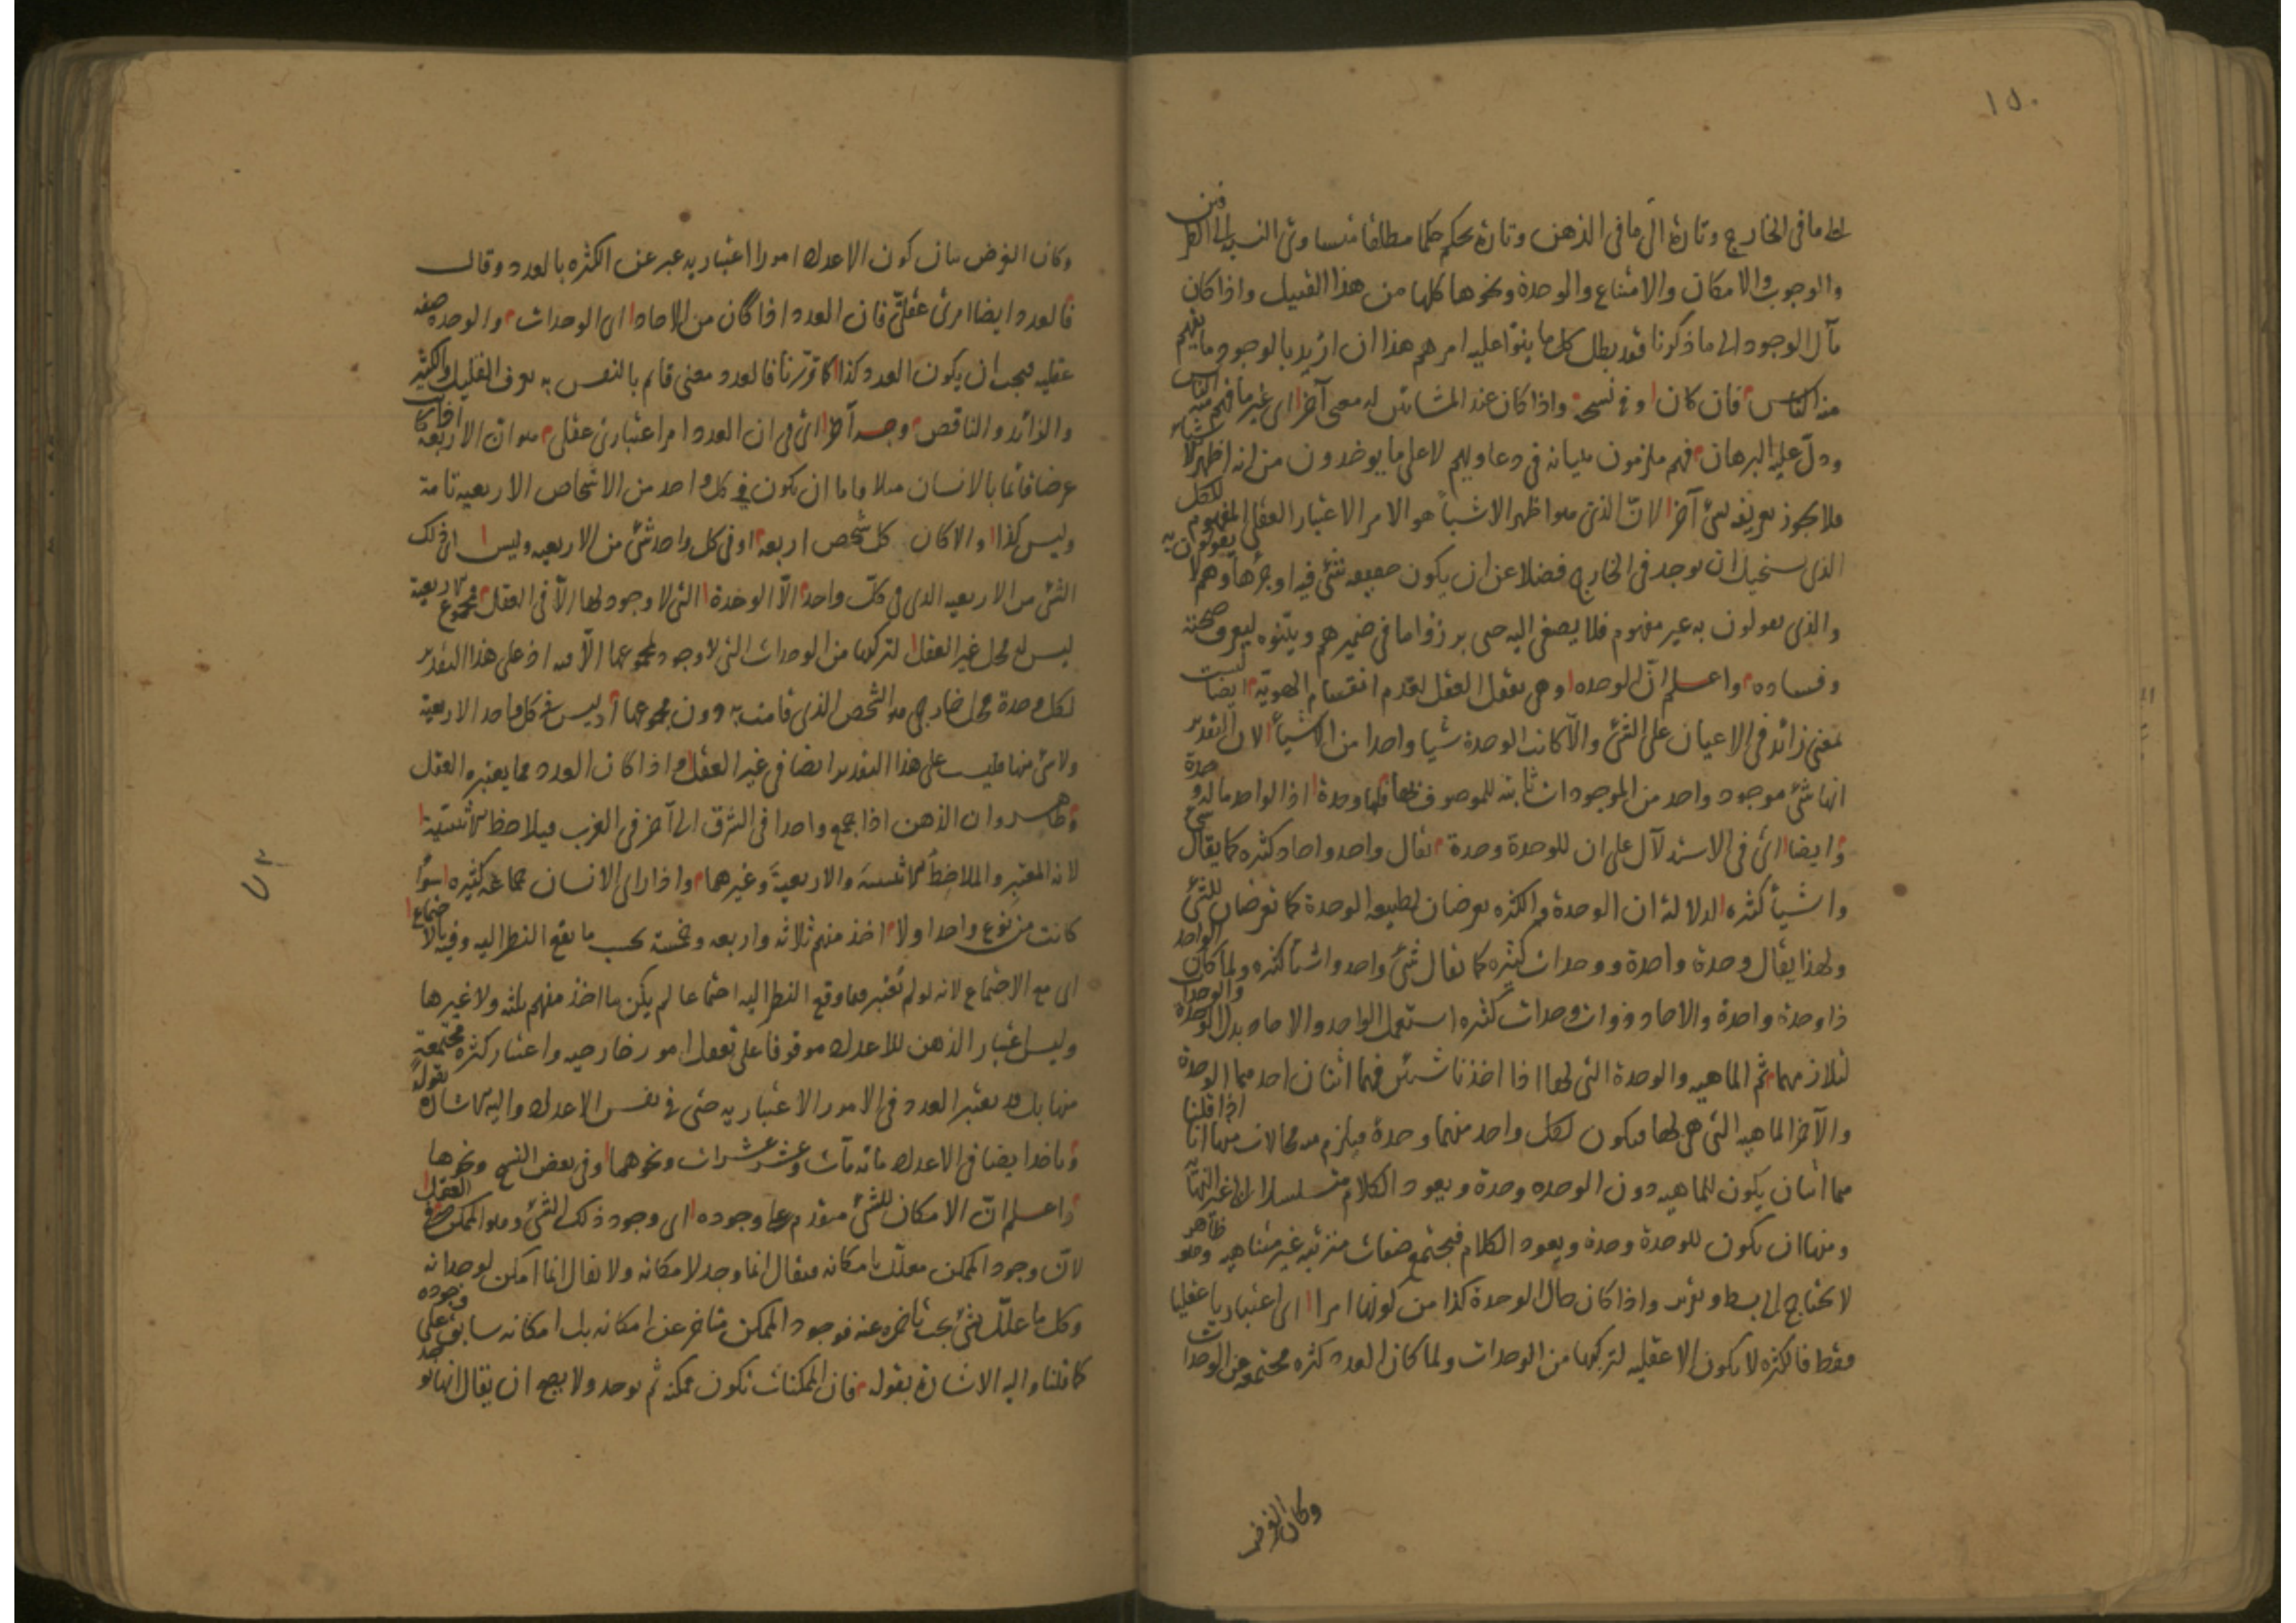 ١٥٠
الى ما فى الخارج وتارة الى ما فى الذهن وتارة يحكم حكما مطلقا متساوى النسبة الى الطرفين
والوجوب والامكان والامتناع والوحدة ونحوها كلها من هذا القبيل واذا كان
مآل الوجود الى ما ذكرنا فقد بطل كل ما بنوا عليه امرهم هذا ان اريد بالوجود ما يفهم
منه الناس فان كان او فى نسخة واذا كان عند المشائين له معنى آخر اى غير ما فهم منه الناس
ودل عليه البرهان فهم ملزمون ببيانه فى دعاويهم لا على ما يوخذون من انه اظهر الاشياء
فلا يجوز تعريفه بشئ آخر لان الذى هو اظهر الاشياء هو الامر الاعتبار العقلى المفهوم للكل
الذى يستحيل ان يوجد فى الخارج فضلا عن ان يكون حقيقة شئ فيه او جزءها وهم لا يقولون به
والذى يقولون به غير مفهوم فلا يصغى اليه حتى يبرزوا ما فى ضميرهم ويبينوه ليعرف صحته
وفساده واعلم ان الوحدة وهى تعقل العقل لعدم انقسام الهوية ايضا ليست
بمعنى زائد فى الاعيان على الشئ والا كانت الوحدة شيا واحدا من الاشياء لان التقدير
انها شئ موجود واحد من الموجودات ثابتة للموصوف بها فلها وحدة اذ الواحد ما له وحدة
وايضا اى فى الاستدلال على ان للوحدة وحدة يقال واحد واحاد كثيرة كما يقال شئ
واشياء كثيرة لدلالة ان الوحدة والكثرة يعرضان لطبيعة الوحدة كما تعرضان للشئ
ولهذا يقال وحدة واحدة ووحدات كثيرة كما يقال شئ واحد واشياء كثيرة ولما كان الواحد
ذا وحدة واحدة والاحاد ذوات وحدات كثيرة استعمل الواحد والاحاد بدل الوحدة والوحدات
لتلازمهما ثم الماهية والوحدة التى لها اذا اخذتا شيئين فهما اثنان احدهما الوحدة
والآخر الماهية التى هى لها فيكون لكل واحد منهما وحدة فيلزم منه محالات منها انا اذا قلنا
هما اثنان يكون للماهية دون الوحدة وحدة ويعود الكلام متسلسلا الى غير النهاية
ومنها ان يكون للوحدة وحدة ويعود الكلام فيجتمع صفات مترتبة غير متناهية وهو ظاهر
لا يحتاج الى بسط وتزيد واذا كان حال الوحدة كذا من كونها امرا اى اعتباريا عقليا
فقط فالكثرة لا يكون الا عقلية لتركبها من الوحدات ولما كان العدد كثرة مجتمعة من الوحدات
وكان الغرض
وكان الغرض بيان كون الاعداد امورا اعتبارية عبر عن الكثرة بالعدد وقال
فالعدد ايضا امر عقلى فان العدد اذا كان من الاحاد اى الوحدات والوحدة صفة
عقلية فيجب ان يكون العدد كذا كما قررنا فالعدد معنى قائم بالنفس به يعرف القليل والكثير
والزائد والناقص وجه آخر اى فى ان العدد امر اعتبارى عقلى هو ان الاربعة اذا كانت
عرضا قائما بالانسان مثلا فاما ان يكون فى كل واحد من الاشخاص الاربعية تامة
وليس كذا والا كان كل شخص اربعة او فى كل واحد شئ من الاربعية وليس اى ذلك
الشئ من الاربعية الذى فى كل واحد الا الوحدة التى لا وجود لها الا فى العقل فمجموع الاربعية
ليس له محل غير العقل لتركبها من الوحدات التى لا وجود لمجموعها الا فيه اذ على هذا التقدير
لكل وحدة محل خارجى هو الشخص الذى قامت به دون مجموعها اذ ليس فى كل واحد الاربعية
ولا شئ منها فليست على هذا التقدير ايضا فى غير العقل واذا كان العدد مما يعتبره العقل
فظاهر ان الذهن اذا جمع واحدا فى الشرق الى آخر فى الغرب فيلاحظ الاثنينية
لانه المعتبر والملاحظ للاثنينية والاربعية وغيرهما واذا راى الانسان جماعة كثيرة سواء
كانت من نوع واحد اولا اخذ منهم ثلاثة واربعة وخمسة بحسب ما يقع النظر اليه وفيه بالاجتماع
اى مع الاجتماع لانه لو لم يعتبر فيما وقع النظر اليه اجتماعا لم يكن ما اخذ منهم ثلثة ولا غيرها
وليس اعتبار الذهن للاعداد موقوفا على تعقل امور خارجية واعتبار كثرة مجتمعة
منها بل قد يعتبر العدد فى الامور الاعتبارية حتى فى نفس الاعداد واليه الاشارة بقوله
وياخذ ايضا فى الاعداد مائة مآت وعشر عشرات ونحوهما وفى بعض النسخ ونحوها
واعلم ان الامكان للشئ متقدم على وجوده اى وجود ذلك الشئ وهو الممكن فى العقل
لان وجود الممكن معلل بامكانه فيقال انما وجد لامكانه ولا يقال انما امكن لوجدانه
وكل ما علل بشئ يجب تاخره عنه فوجود الممكن متاخر عن امكانه بل امكانه سابق على وجوده
كما قلنا واليه الاشارة بقوله فان الممكنات تكون ممكنة ثم توجد ولا يصح ان يقال انها توجد